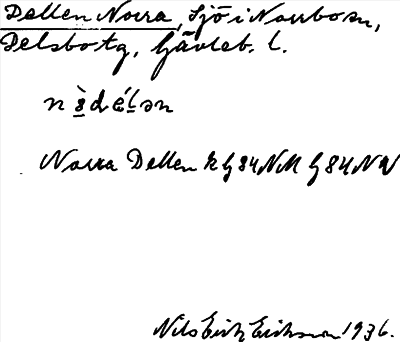 Dellen Norra, Sjö i Norrbo sn,
Delsbo tg, Gävleb. l.
n ꞩ̀ d é l ən
Norra Dellen k G 84 NM G 84 NV
Nils Erik Erikson 1936.